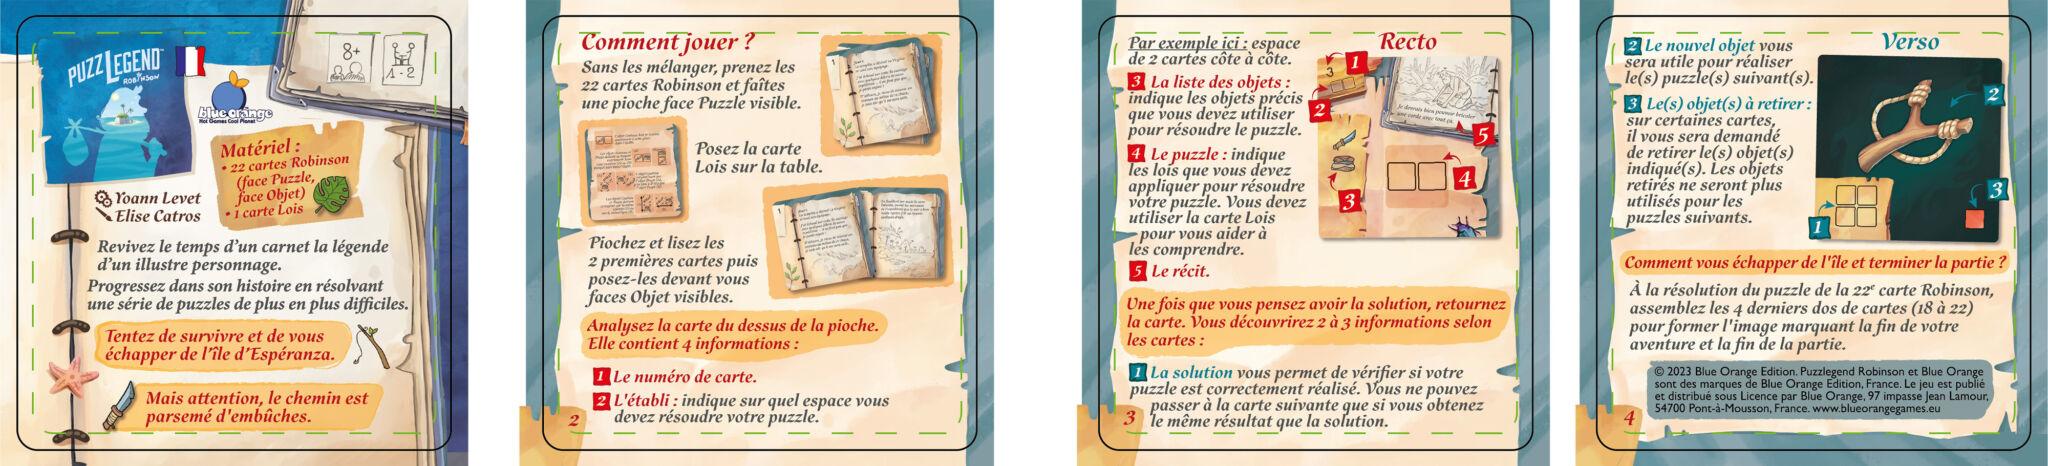 PUZZLEGEND™
ROBINSON
8+
1-2
blue orange
Hot Games Cool Planet
Matériel :
• 22 cartes Robinson
(face Puzzle,
face Objet)
• 1 carte Lois
Yoann Levet
Elise Catros
Revivez le temps d'un carnet la légende
d'un illustre personnage.
Progressez dans son histoire en résolvant
une série de puzzles de plus en plus difficiles.
Tentez de survivre et de vous
échapper de l'île d'Espéranza.
Mais attention, le chemin est
parsemé d'embûches.
Comment jouer ?
Sans les mélanger, prenez les
22 cartes Robinson et faîtes
une pioche face Puzzle visible.
Posez la carte
Lois sur la table.
Piochez et lisez les
2 premières cartes puis
posez-les devant vous
faces Objet visibles.
Analysez la carte du dessus de la pioche.
Elle contient 4 informations :
1 Le numéro de carte.
2 L'établi : indique sur quel espace vous
devez résoudre votre puzzle.
2
Par exemple ici : espace
de 2 cartes côte à côte.
3 La liste des objets :
indique les objets précis
que vous devez utiliser
pour résoudre le puzzle.
4 Le puzzle : indique
les lois que vous devez
appliquer pour résoudre
votre puzzle. Vous devez
utiliser la carte Lois
pour vous aider à
les comprendre.
5 Le récit.
Recto
3
1
2
Je devrais bien pouvoir bricoler
une corde avec tout ça.
5
4
3
Une fois que vous pensez avoir la solution, retournez
la carte. Vous découvrirez 2 à 3 informations selon
les cartes :
1 La solution vous permet de vérifier si votre
puzzle est correctement réalisé. Vous ne pouvez
passer à la carte suivante que si vous obtenez
le même résultat que la solution.
3
2 Le nouvel objet vous
sera utile pour réaliser
le(s) puzzle(s) suivant(s).
3 Le(s) objet(s) à retirer :
sur certaines cartes,
il vous sera demandé
de retirer le(s) objet(s)
indiqué(s). Les objets
retirés ne seront plus
utilisés pour les
puzzles suivants.
Verso
2
3
1
Comment vous échapper de l'île et terminer la partie ?
À la résolution du puzzle de la 22e carte Robinson,
assemblez les 4 derniers dos de cartes (18 à 22)
pour former l'image marquant la fin de votre
aventure et la fin de la partie.
© 2023 Blue Orange Edition. Puzzlegend Robinson et Blue Orange
sont des marques de Blue Orange Edition, France. Le jeu est publié
et distribué sous Licence par Blue Orange, 97 impasse Jean Lamour,
54700 Pont-à-Mousson, France. www.blueorangegames.eu
4